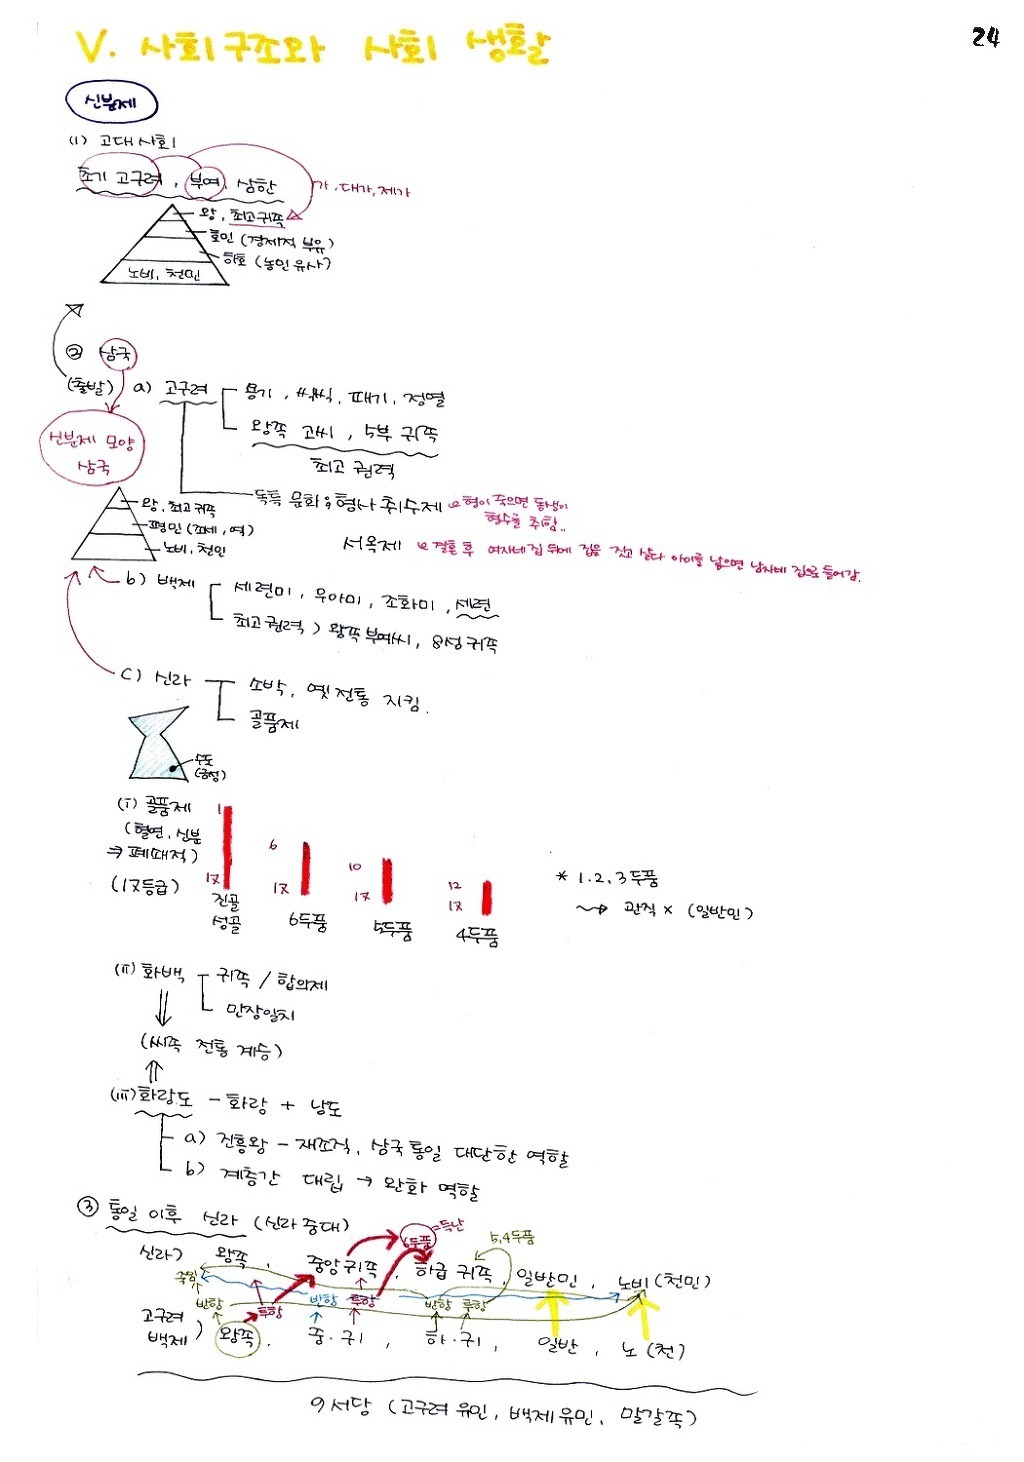 V. 사회구조와 사회 생활
24
신분제
(1) 고대사회
초기 고구려, 부여, 삼한
가, 대가, 제가
왕, 최고귀족
호민 (경제적 부유)
하호 (농민유사)
노비, 천민
② 삼국
(출발) a) 고구려
용기, 씩씩, 패기, 정열
왕족 고씨, 5부 귀족
최고 권력
신분제 모양
삼국
독특 문화; 형사취수제 형이 죽으면 동생이
형수를 취함..
왕, 최고귀족
평민 (조세, 역)
노비, 천민
서옥제 결혼 후 여자네집 뒤에 집을 짓고 살다 아이를 낳으면 남자네 집으로 들어감.
b) 백제
세련미, 우아미, 조화미, 세련
최고권력 > 왕족 부여씨, 8성 귀족
C) 신라
소박, 옛 전통 지킴.
골품제
수도
(금성)
(i) 골품제
(혈연, 신분
⇒ 폐쇄적)
(17등급)
1
17
진골
성골
6
17
6두품
10
17
5두품
12
17
4두품
* 1.2.3두품
관직 × (일반민)
(ii) 화백
귀족 / 합의제
만장일치
(씨족 전통 계승)
(iii) 화랑도 - 화랑 + 낭도
a) 진흥왕 - 재조직, 삼국통일 대단한 역할
b) 계층간 대립 → 완화 역할
③ 통일 이후 신라 (신라중대)
6두품 =득난
5,4두품
신라) 왕족, 중앙귀족, 하급 귀족, 일반민, 노비(천민)
죽임
반항 투항 반항 투항 반항 투항
고구려
백제 ) 왕족, 중.귀, 하.귀, 일반, 노(천)
9서당 (고구려 유민, 백제유민, 말갈족)